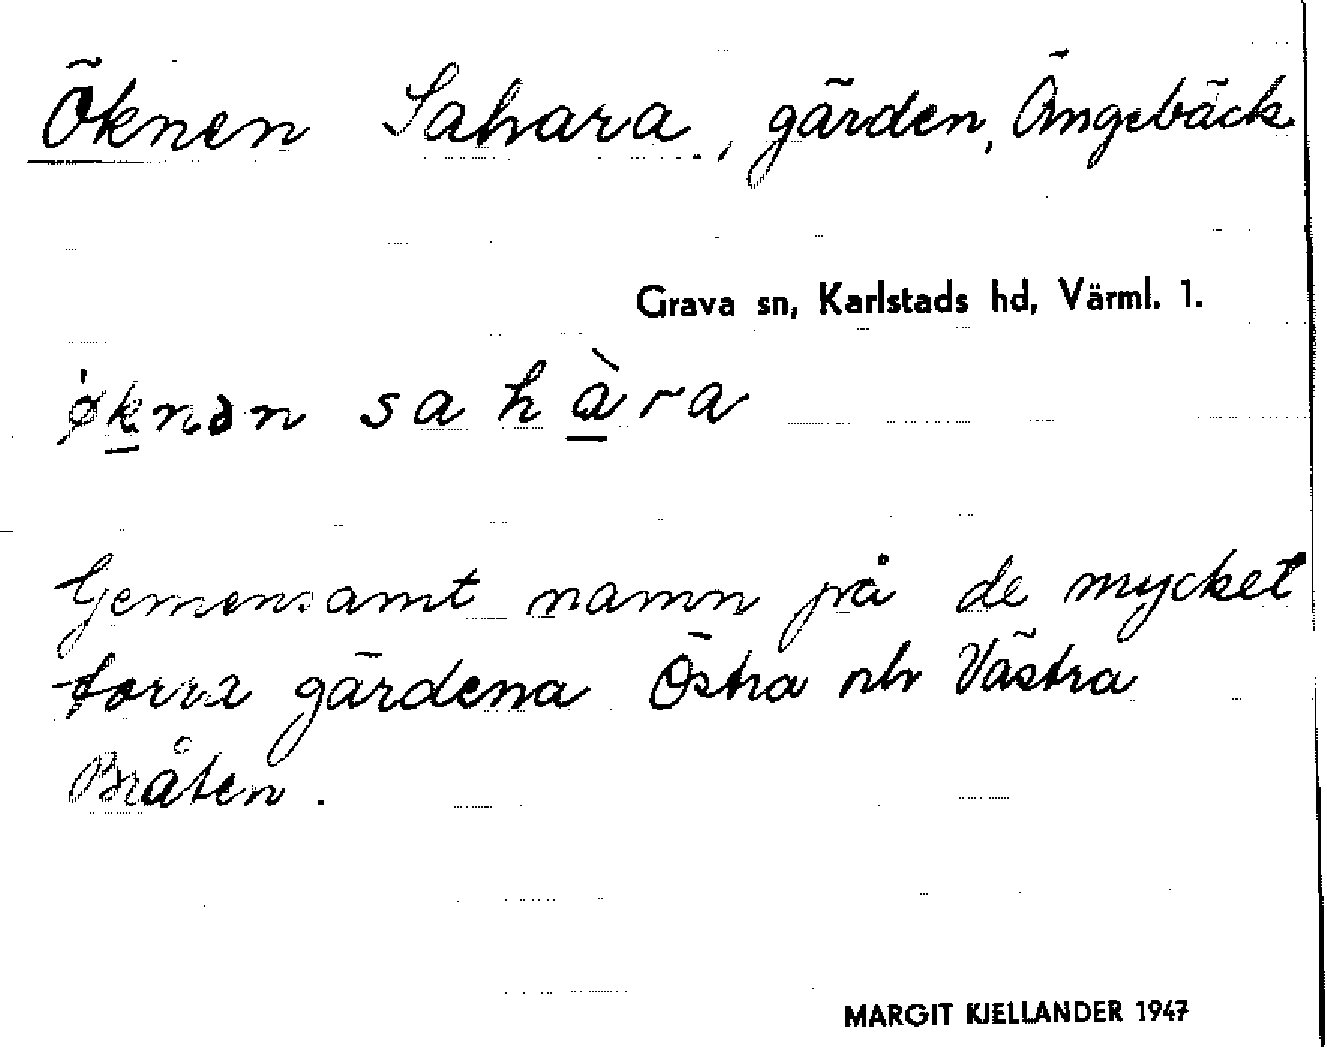 Öknen Sahara, gärden, Ängebäck
Grava sn, Karlstads hd, Värml. l.
ǿknən sahàra
Gemensamt namn på de mycket
torra gärdena Östra och Västra
Bråten.
MARGIT KJELLANDER 1947